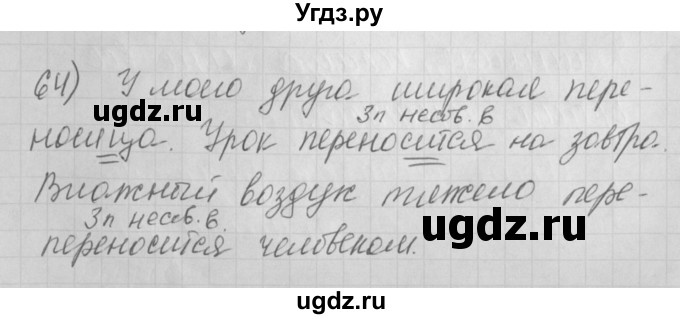 Угдз.ру
64) У моего друга широкая пере-
3л несов. в
носица. Урок переносится на завтра.
Влажный воздух тяжело пере-
3л несов. в.
переносится человеком.
ugdz.ru
ugdz.ru
ugdz.ru
ugdz.ru